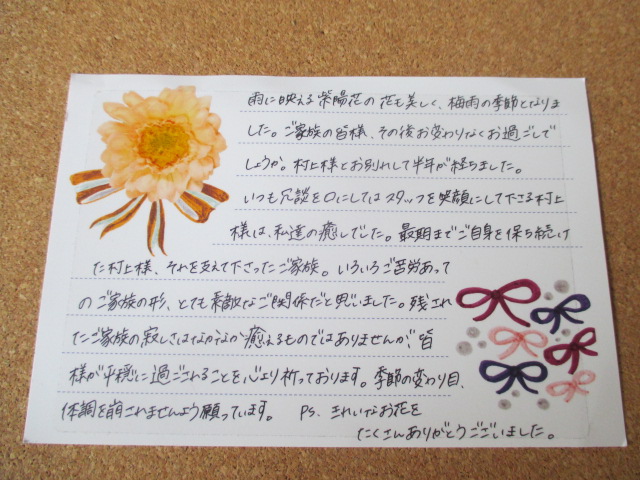 雨に映える紫陽花の花も美しく、梅雨の季節となりま
した。ご家族の皆様、その後お変わりなくお過ごしで
しょうか。村上様とお別れして半年が経ちました。
いつも冗談を口にしてはスタッフを笑顔にして下さる村上
様は、私達の癒しでした。最期までご自身を保ち続け
た村上様、それを支えて下さったご家族。いろいろご苦労あって
のご家族の形、とても素敵なご関係だと思いました。残され
たご家族の寂しさはなかなか癒えるものではありませんが、皆
様が平穏に過ごされることを心より祈っております。季節の変わり目、
体調を崩されませんよう願っています。 PS. きれいなお花を
たくさんありがとうございました。